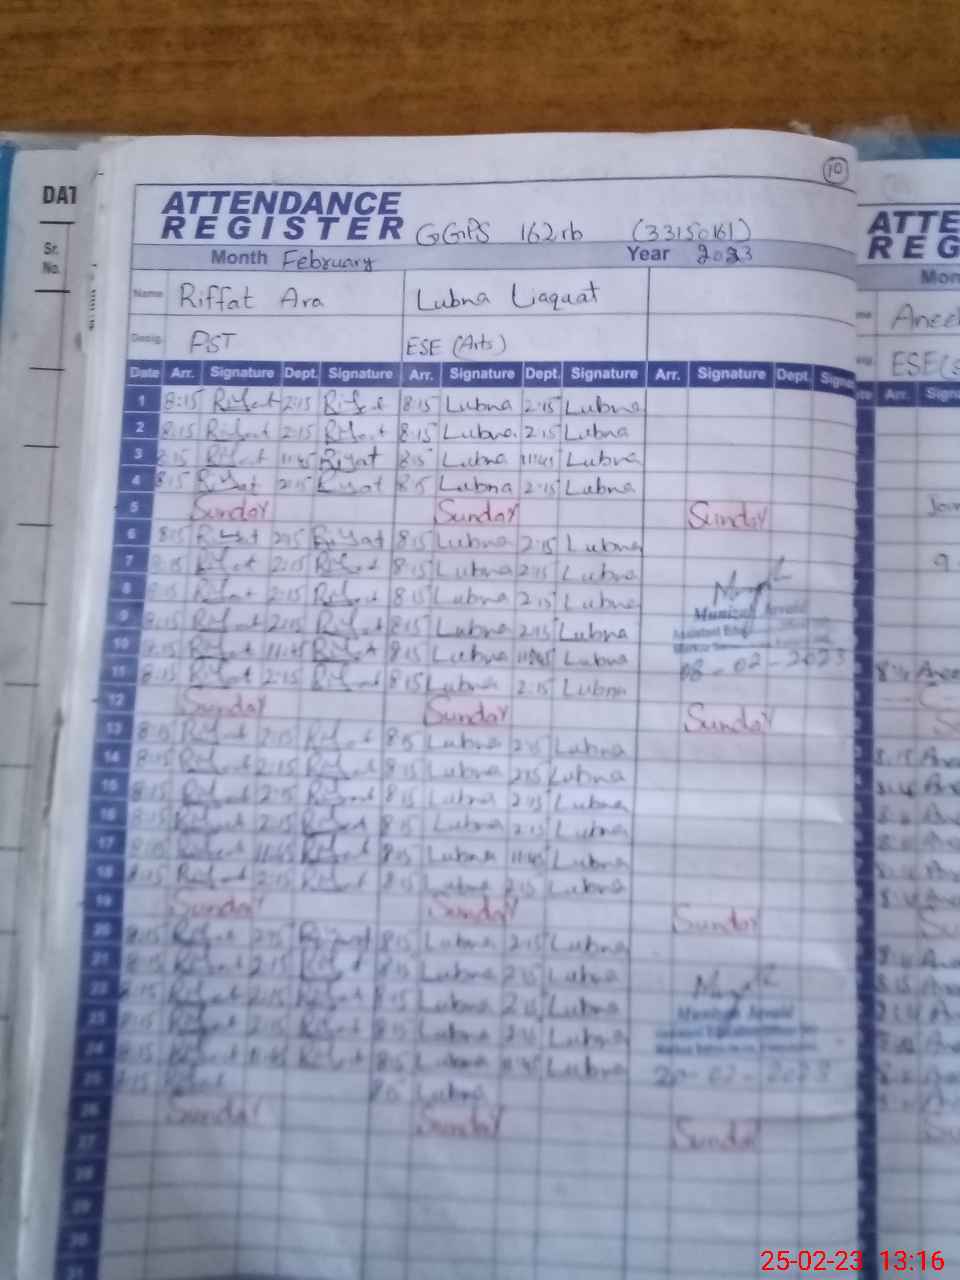 DAT
Sr.
No.
10
ATTENDANCE
REGISTER GGPS 162rb (33150161)
Month February Year 2023
Name Riffat Ara Lubna Liaquat
Desig. PST ESE (Arts)
Date Arr. Signature Dept. Signature Arr. Signature Dept. Signature Arr. Signature Dept. Signa
1 8:15 Riffat 2:15 Riffat 8:15 Lubna 2:15 Lubna
2 8:15 Riffat 2:15 Riffat 8:15 Lubna 2:15 Lubna
3 8:15 Riffat 11:45 Riffat 8:15 Lubna 11:45 Lubna
4 8:15 Riffat 2:15 Riffat 8:15 Lubna 2:15 Lubna
5 Sunday Sunday Sunday
6 8:15 Riffat 2:15 Riffat 8:15 Lubna 2:15 Lubna
7 8:15 Riffat 2:15 Riffat 8:15 Lubna 2:15 Lubna
8 8:15 Riffat 2:15 Riffat 8:15 Lubna 2:15 Lubna
9 8:15 Riffat 2:15 Riffat 8:15 Lubna 2:15 Lubna
10 8:15 Riffat 11:45 Riffat 8:15 Lubna 11:45 Lubna
08-02-2023
11 8:15 Riffat 2:15 Riffat 8:15 Lubna 2:15 Lubna
12 Sunday Sunday Sunday
13 8:15 Riffat 2:15 Riffat 8:15 Lubna 2:15 Lubna
14 8:15 Riffat 2:15 Riffat 8:15 Lubna 2:15 Lubna
15 8:15 Riffat 2:15 Riffat 8:15 Lubna 2:15 Lubna
16 8:15 Riffat 2:15 Riffat 8:15 Lubna 2:15 Lubna
17 8:15 Riffat 11:45 Riffat 8:15 Lubna 11:45 Lubna
18 8:15 Riffat 2:15 Riffat 8:15 Lubna 2:15 Lubna
19 Sunday Sunday Sunday
20 8:15 Riffat 2:15 Riffat 8:15 Lubna 2:15 Lubna
21 8:15 Riffat 2:15 Riffat 8:15 Lubna 2:15 Lubna
22 8:15 Riffat 2:15 Riffat 8:15 Lubna 2:15 Lubna
23 8:15 Riffat 2:15 Riffat 8:15 Lubna 2:15 Lubna
24 8:15 Riffat 11:45 Riffat 8:15 Lubna 11:45 Lubna
-02-2023
25 8:15 Riffat 8:15 Lubna
26 Sunday Sunday Sunday
27
28
29
30
31
ATTE
REG
Mon
Aneel
ESE(S
Arr. Signa
25-02-23 13:16